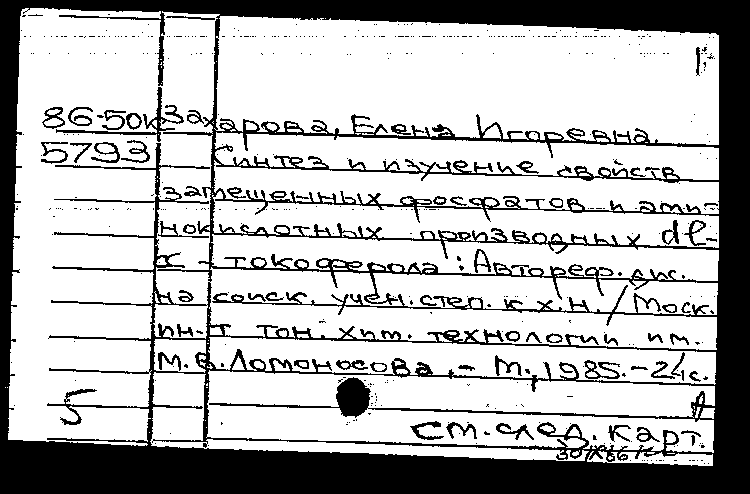 86-50к Захарова, Елена Игоревна.
5793 Синтез и изучение свойств
замещенных фосфатов и ами-
нокислотных производных dl-
α - токоферола : Автореф. дис.
на соиск. учен. степ. к.х.н. / Моск.
ин-т тон. хим. технологии им.
М.В. Ломоносова. - М., 1985. - 24 с.
5
см. след. карт.